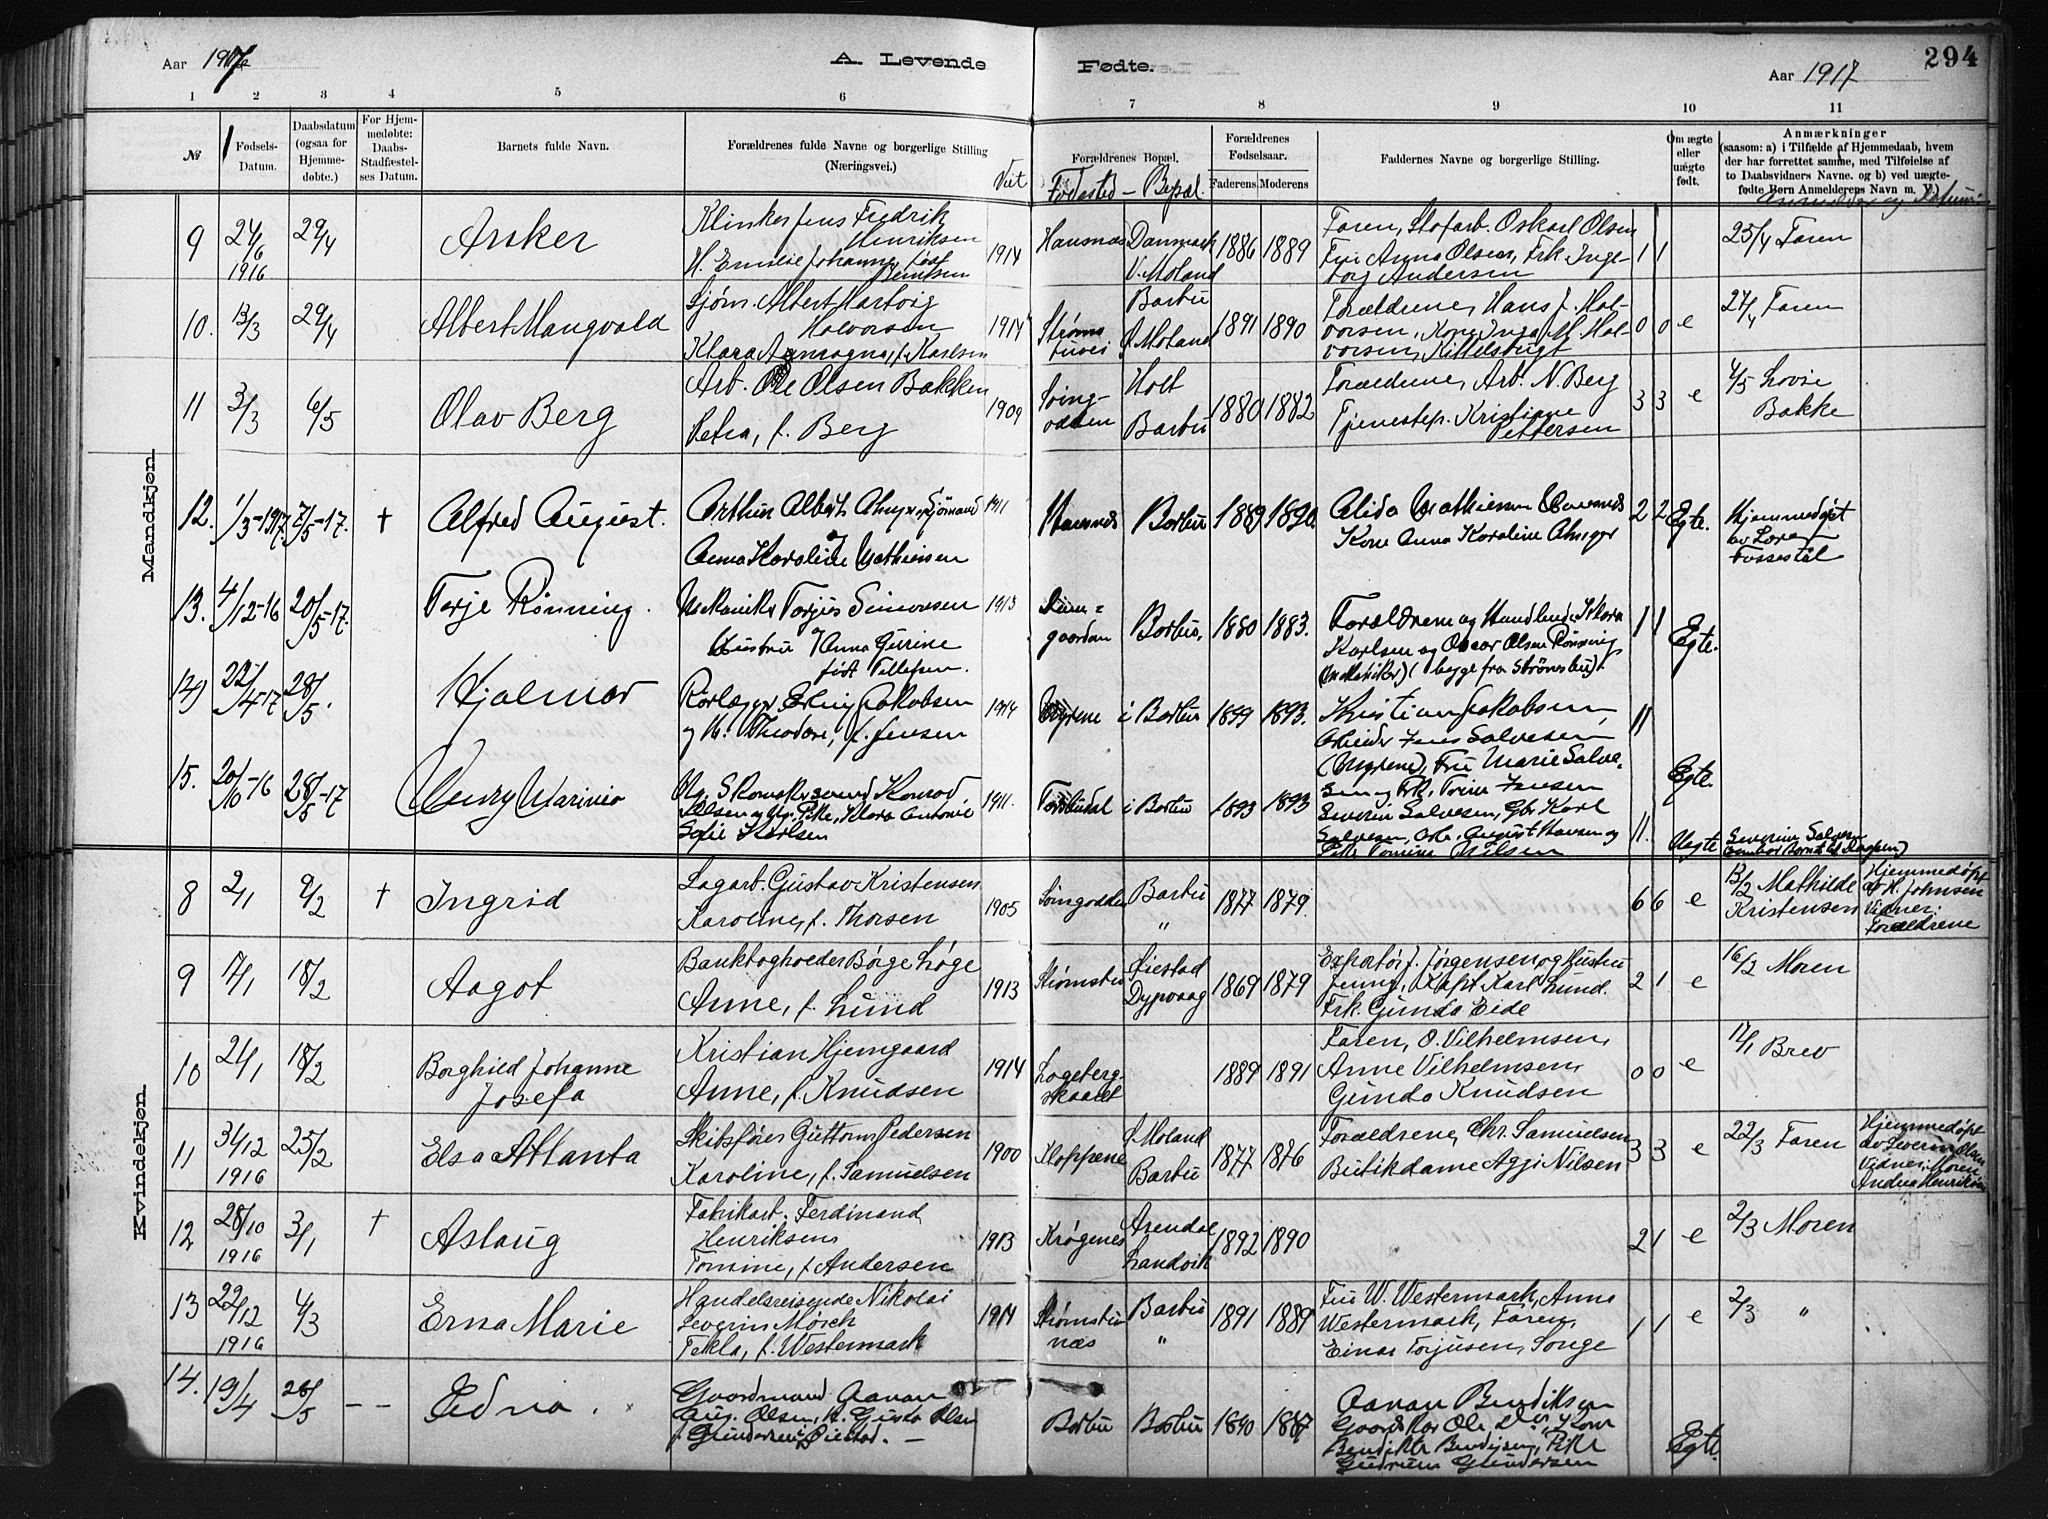 Aar 1917
A. Levende Fødte.
Aar 1917
294
1 2 3 4 5 6 7 8 9 10 11
№
Fødsels-Datum.
Daabsdatum (ogsaa for Hjemmedøbte.)
For Hjemmedøbte: Daabs-Stadfæstelses Datum.
Barnets fulde Navn.
Forældrenes fulde Navne og borgerlige Stilling (Næringsvei.)
Viet
Forældrenes Bopæl.
Fødested – Bopæl.
Forældrenes Fødselsaar.
Faderens. Moderens
Faddernes Navne og borgerlige Stilling.
Om ægte eller uægte født.
Anmærkninger
(saasom: a) i Tilfælde af Hjemmedaab, hvem der har forrettet samme, med Tilføielse af to Daabsvidners Navne. og b) ved uægtefødte Børn Anmelderens Navn m. V.)
Mandkjøn
9 24/6 1916 29/4 Anker
Klinker Jens Fredrik
Henriksen
H. Emelie Johanne, født
Berntsen
1914 Hausnæs Danmark
V. Moland
1886 1889
Faren, Stofarb. Oskarl Olsen
Fru Anna Olsen, Frk. Inge-
borg Andersen
1 1 25/4 Faren
10. 13/3 29/4 Albert Mangvald
Sjøm. Albert Hartvig
Halvorsen
Klara Asmagna, f. Karlsen
1914 Strøms
buvei
Barbu
Ø. Moland
1891 1890
Forældrene, Hans J. Hal-
vorsen, Kone Inga M. Hal-
vorsen, Kittelsbugt
0 0 e 27/4 Faren
11 3/3 6/5 Olav Berg
Arb. Ole Olsen Bakken
Petra, f. Berg
1909 Songe-
odden
Holt
Barbu
1880 1882
Forældrene, Arb. N. Berg
Tjenestep. Kristiane
Pettersen
3 3 e 4/5 Lovise
Bakke
12. 1/3-1917. 2/5-17. † Alfred August.
Anna Karoline Mathiesen
1911 Barbu 1889 1890
Kone Anna Karoline
2 2 Egte. Hjemmedøpt
av Loren
Fossestøl
13. 4/12-16 20/5-17. Terje Rønning.
Mekaniker Torjus Simonsen
Hustru Anna Gurine
født Tellefsen.
1913 Barbu, 1880 1883.
Karlsen og Oscar Olsen Rønning
(Mekaniker) (begge fra Strømsbu).
1 1 Egte.
14) 22/4 17 28/5. Hjalmar
Rørlægger Erling Jakobsen
og H. Theodora, f. Jensen
1914 Myrene i Barbu 1889 1893.
Kristian Jakobsen,
Arbeider Jens Salvesen
(Myrene), Fru Marie Salve-
sen og Frk. Trine Jensen
1 1 Egte.
15. 20/10-16 28/5-17 Henry Marinio
Ug. Skomakersvend Konrad
Olsen og Ug. Pike, Klara Antonie
Sofie Karlsen
1911. i Barbu 1893 1893
Severin Salvesen, Gbr. Karl
Salvesen, Arb. August Hansen og
Pike Tomine Nilsen
11. Uegte Severin Salvesen
Kvindekjøn
8 2/1 9/2 † Ingrid
Lagarb. Gustav Kristensen
Karoline, f. Thorsen
1905 Songodden Barbu
"
1877 1879. 6 6 e
13/2 Mathilde
Kristensen
Hjemmedøpt
af K. Johnsen
Vidner:
Forældrene
9 7/1 18/2 Aagot
Bankbogholder Børge Løge
Anne, f. Lund
1913 Strømsbu Øiestad
Dypvaag
1869 1879
Exportør J. Jørgensen og Hustru
Jenny, Kapt. Karl Lund.
Frk. Gunda Eide
2 1 e 16/2 Moren
10 21/1 18/2 Borghild Johanne
Josefa
Kristian Hjemgaard
Anne, f. Knudsen
1914 Lageberg
skaaret
1889 1891
Faren, O. Vilhelmsen,
Anne Vilhelmsen,
Gunda Knudsen
0 0 e 17/1 Brev
11 31/12 1916 25/2 Elsa Atlanta
Skibsfører Guttorm Pedersen
Karoline, f. Samuelsen
1900 Kloppene Ø. Moland
Barbu
1877 1876
Forældrene, Chr. Samuelsen
Butikdame Aggi Nilsen
3 3 e 22/3 Faren
Hjemmedøpt
av Severin Olsen
Vidner: Moren
Andrea Henriksen
12 28/10 1916 3/1 † Aslaug
Fabrikarb. Ferdinand
Henriksen
Tomine, f. Andersen
1913 Krøgenes Arendal
Landvik
1892 1890 2 1 e 2/3 Moren
13 22/12 1916 4/3 Erna Marie
Handelsreisende Nikolai
Severin Mørch
Tekla, f. Westermark
1914 Strømsbu
næs
Barbu
"
1891 1889
Fru W. Westermark, Anne
Westermark, Faren,
Einar Torjusen, Songe
1 1 e 2/3 "
14. 19/4 28/5 – – Edna.
Gaardmand Aanan
Aug. Olsen, H. Gusta Olsen
f. Gundersen, Øiestad. –
Barbu Barbu 1890 1887
Aanan Bendiksen
Gudrun Gundersen
Egte.